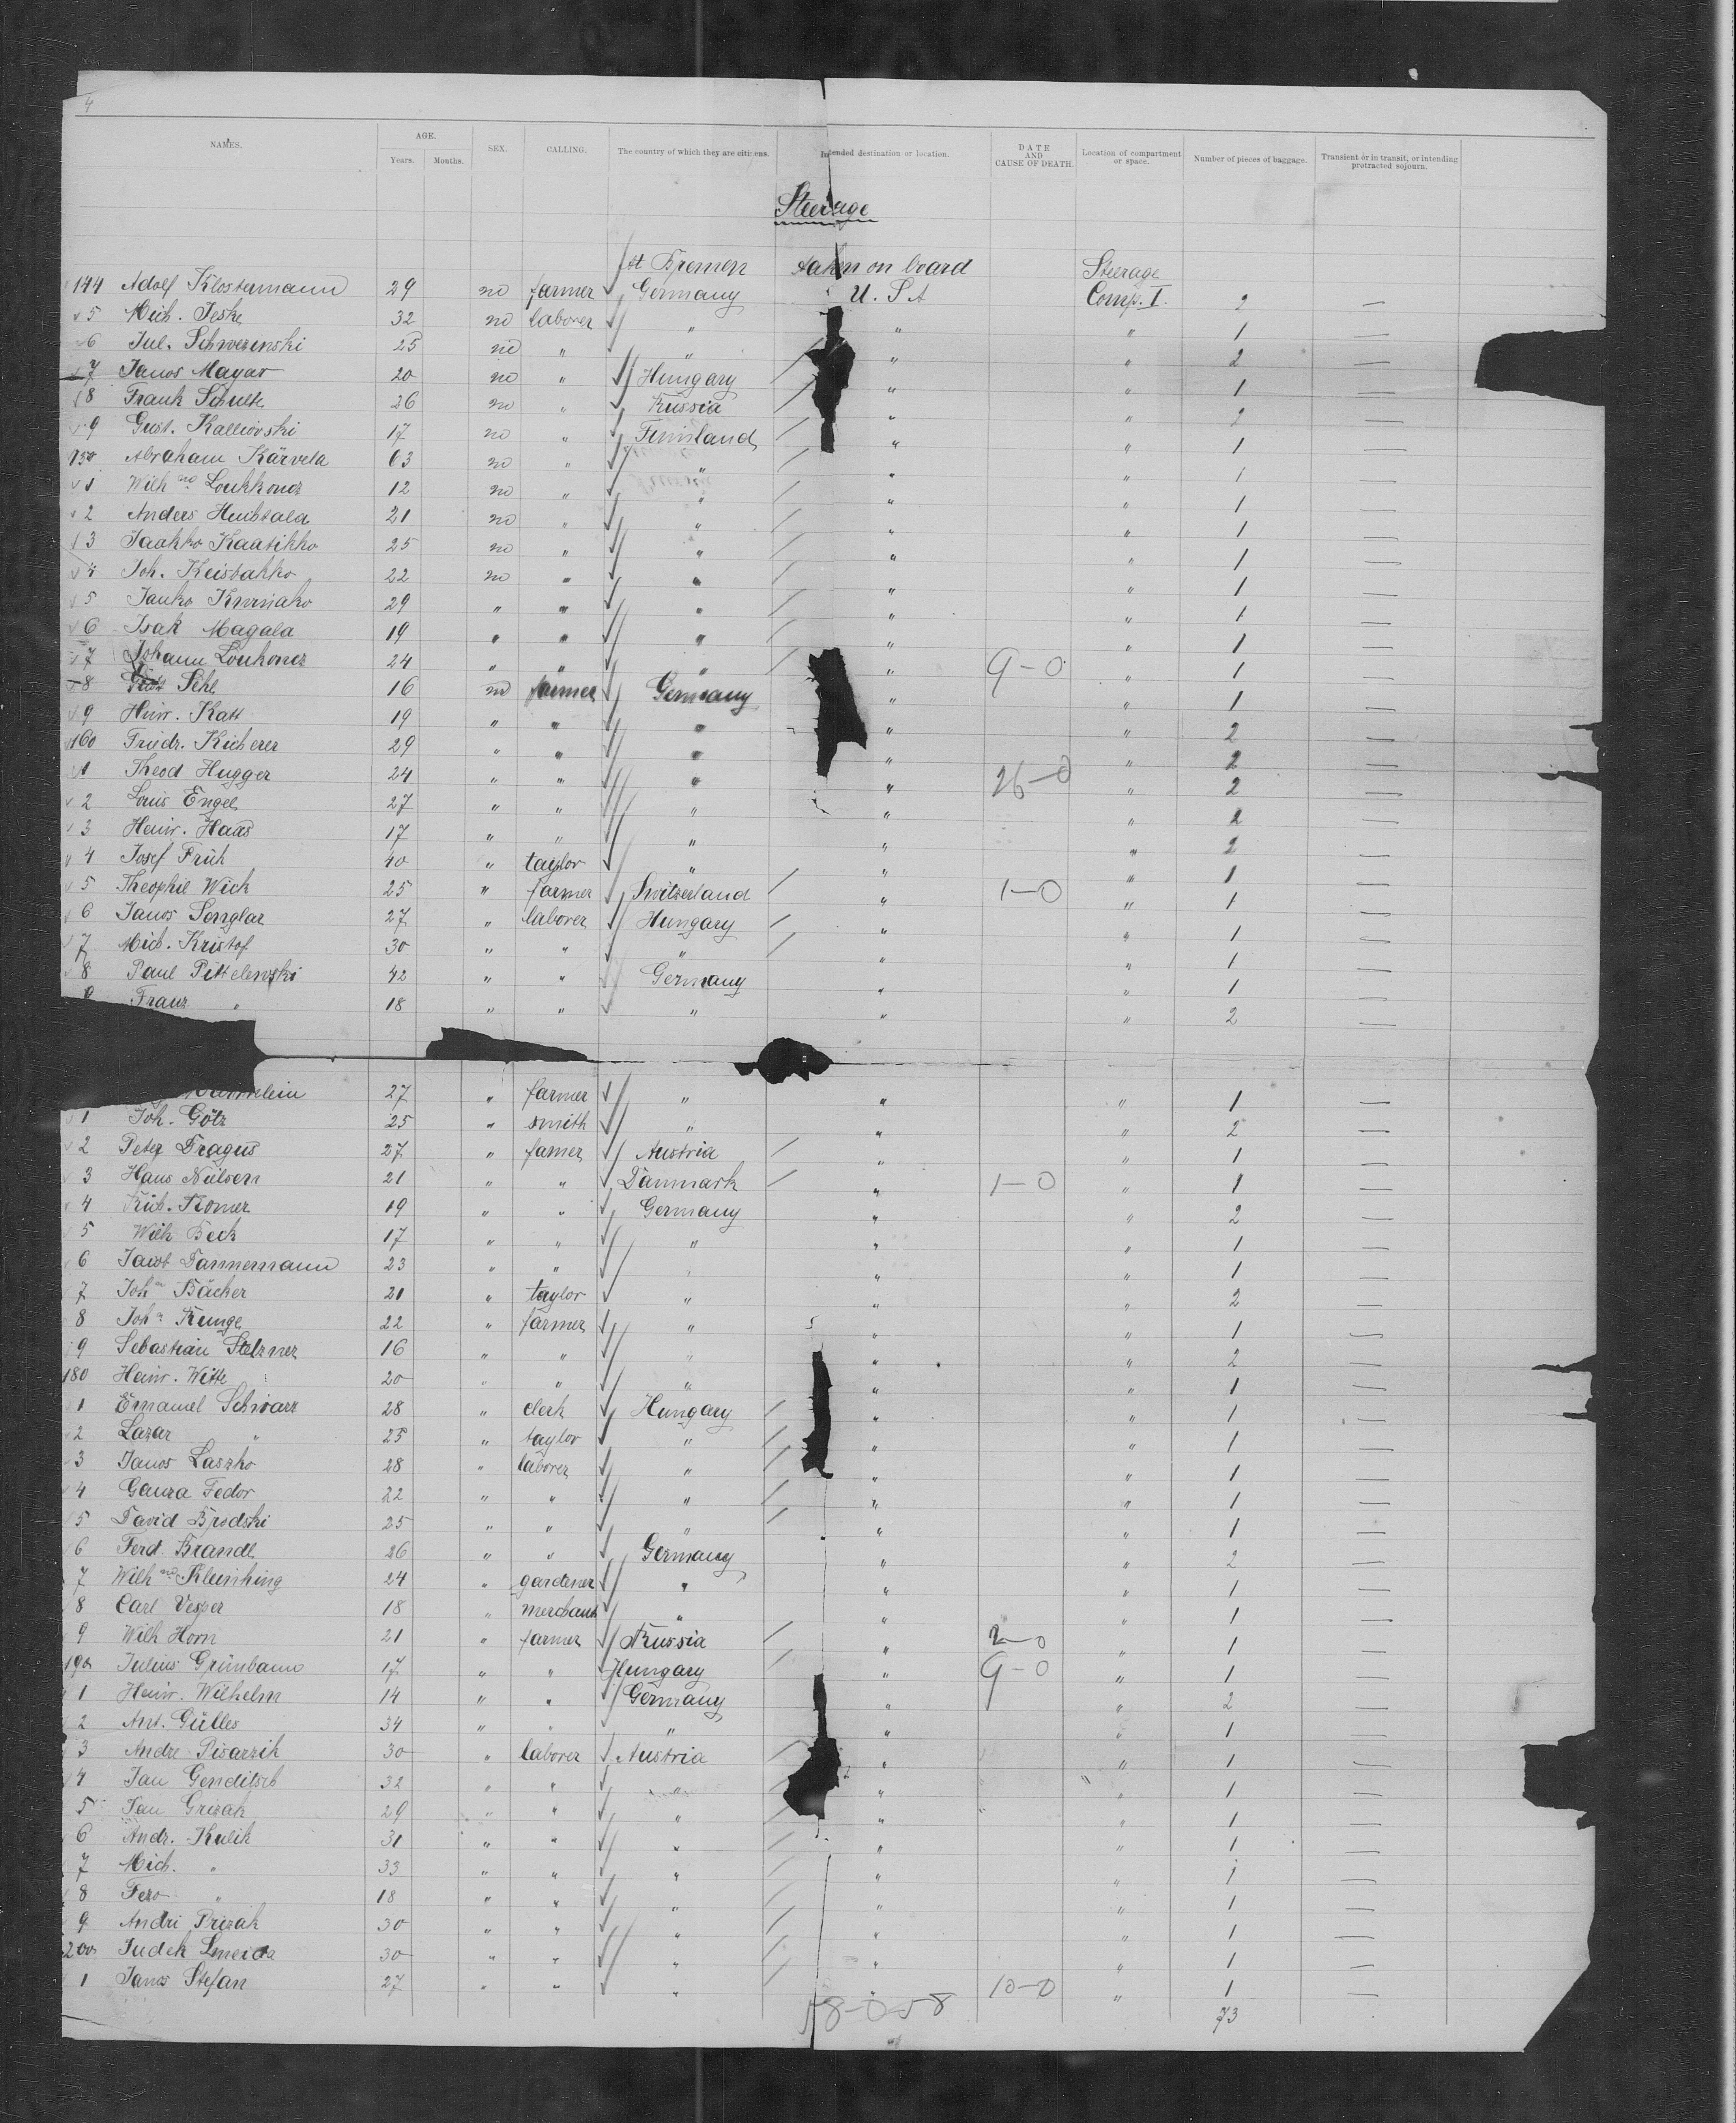 4
NAMES. AGE. Years. Months. SEX. CALLING. The country of which they are citizens. Intended destination or location. DATE AND CAUSE OF DEATH. Location of compartment or space. Number of pieces of baggage. Transient or in transit, or intending protracted sojourn.
Steerage
At Bremen taken on board Steerage
144 Adolf Klostermann 29 m farmer Germany U. S A Comp. I. 2 —
5 Mich. Jeske 32 m laborer " " " 1 —
6 Jul. Schwerinski 25 m " " " " 2 —
7 Janos Mayar 20 m " Hungary " " 1 —
8 Frank Schulte 26 m " Russia " " 2 —
9 Gust. Kalliovski 17 m " Finnland " " 1 —
150 Abraham Kärvela 63 m " " " " 1 —
1 Wilh Loukkones 12 m " " " " 1 —
2 Anders Huibtala 21 m " " " " 1 —
3 Jaakko Kaatikko 25 m " " " " 1 —
4 Joh. Keisbakko 22 m " " " " 1 —
5 Janko 29 " " " " " 1 —
6 Isak Magala 19 " " " " " 1 —
7 Johann Loukones 24 " " " " 9-0 " 1 —
8 Sehl 16 m farmer Germany " " 1 —
9 Hinr. Katt 19 " " " " " 2 —
160 Friedr. Kicherer 29 " " " " " 2 —
1 Theod Hugger 24 " " " " 26-0 " 2 —
2 Louis Engel 27 " " " " " 2 —
3 Heinr. Haas 17 " " " " " 2 —
4 Josef Früh 40 " taylor " " " 1 —
5 Theophil Wick 25 " farmer Switzerland " 1-0 " 1 —
6 Janos Senglar 27 " laborer Hungary " " 1 —
7 Mich. Kristof 30 " " " " " 1 —
8 Paul Pittelewski 42 " " Germany " " 1 —
9 Franz " 18 " " " " " 2 —
27 " farmer " " " 1 —
1 Joh. Götz 25 " smith " " " 2 —
2 Peter Dragus 27 " famer Austria " " 1 —
3 Hans Nielsen 21 " " Danmark " 1-0 " 1 —
4 Romer 19 " " Germany " " 2 —
5 Wilh Beck 17 " " " " " 1 —
6 Jacob Dannemann 23 " " " " " 1 —
7 John Bäcker 21 " taylor " " " 2 —
8 Joh. Runge 22 " farmer " " " 1 —
9 Sebastian Stelzner 16 " " " " " 2 —
180 Heinr. Witte 20 " " " " " 1 —
1 Emanuel Schwarz 28 " clerk Hungary " " 1 —
2 Lazar " 25 " taylor " " " 1 —
3 Janos Laszko 28 " laborer " " " 1 —
4 Gaura Fedor 22 " " " " " 1 —
5 David Brodski 25 " " " " " 1 —
6 Ferd. Brandl 26 " " Germany " " 2 —
7 Wilh Kleinking 24 " gardener " " " 1 —
8 Carl Vesper 18 " merchant " " " 1 —
9 Wilh Horn 21 " farmer Russia " 2-0 " 1 —
190 Julius Grünbaum 17 " " Hungary " 9-0 " 1 —
1 Heinr. Wilhelm 14 " " Germany " " 2 —
2 Ant. Gülles 34 " " " " " 1 —
3 Andre Pisarzik 30 " laborer Austria " " 1 —
4 Jan Genditsch 32 " " " " " 1 —
5 Jan Grizak 29 " " " " " 1 —
6 Andr. Kulik 31 " " " " " 1 —
7 Mich. " 33 " " " " " 1 —
8 Fero " 18 " " " " " 1 —
9 Andri Prizak 30 " " " " " 1 —
200 Judek Smeida 30 " " " " " 1 —
1 Janos Stefan 27 " " " " 10-0 " 1 —
58-0-58 73